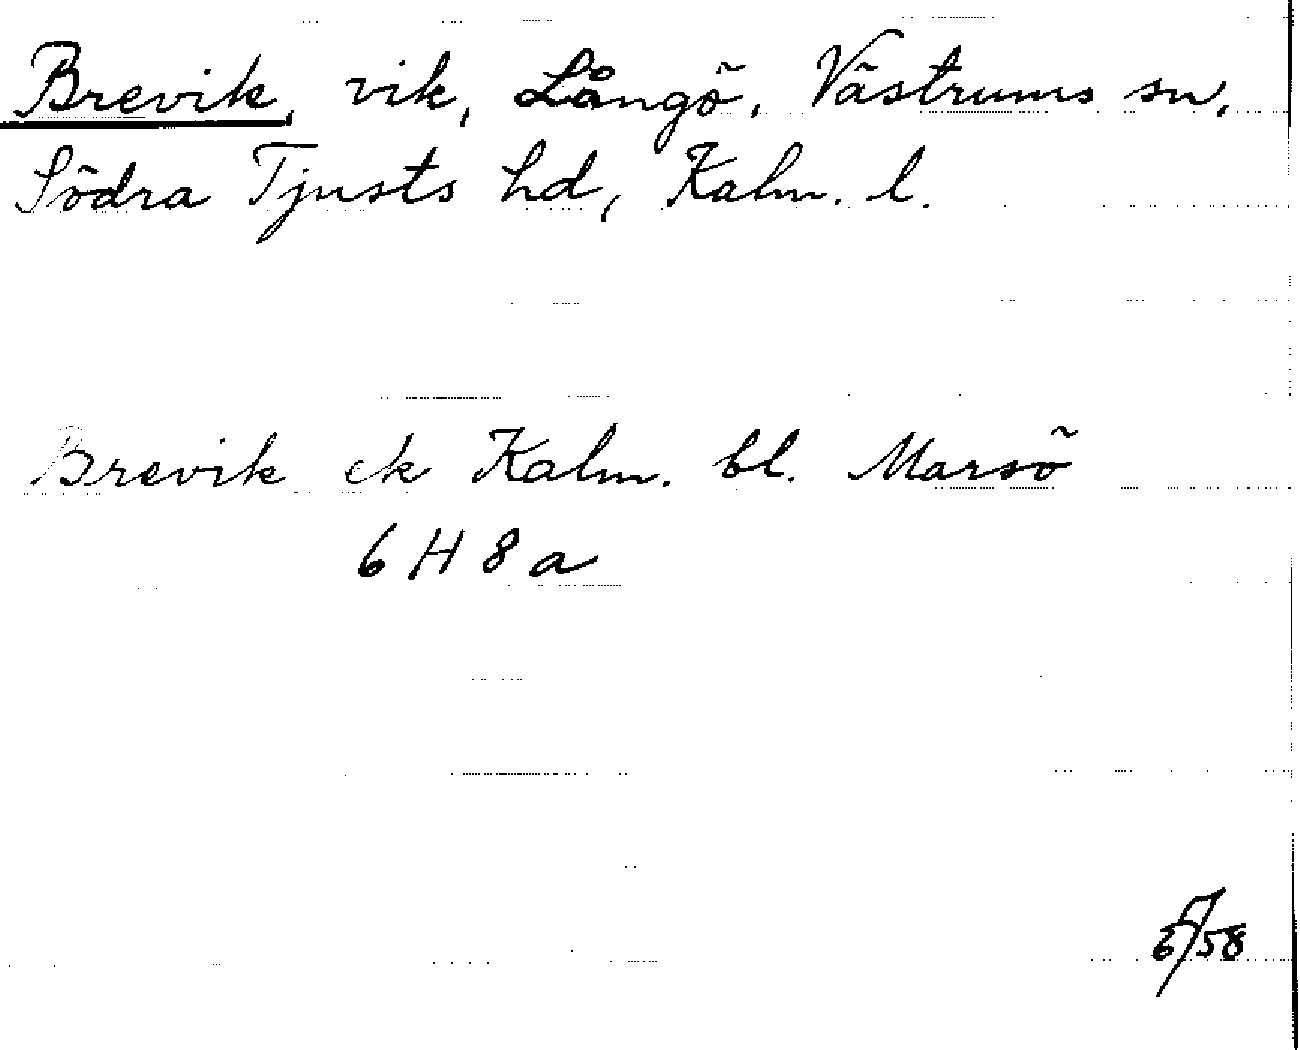 Brevik, vik, Långö, Västrums sn,
Södra Tjusts hd, Kalm. l.
Brevik ek Kalm. bl. Marsö
6 H 8 a